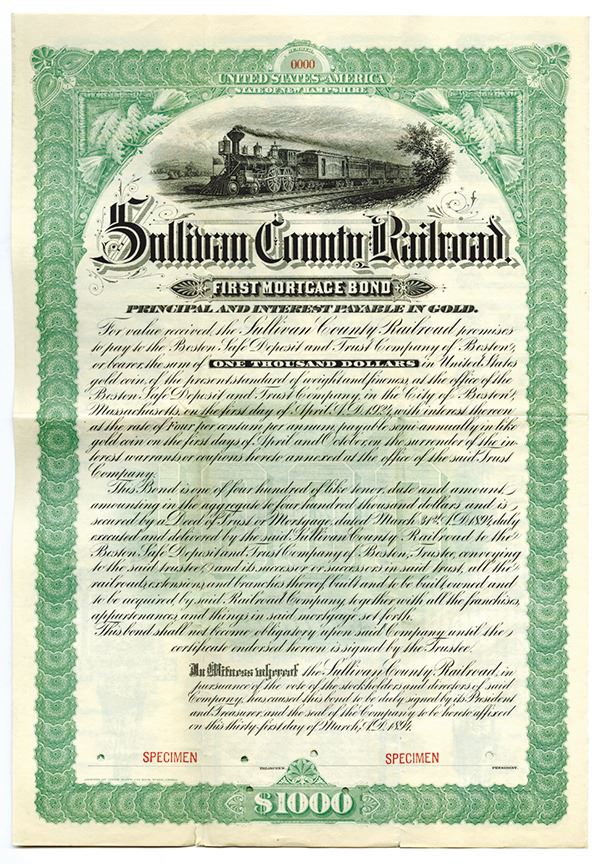 NUMBER
0000
UNITED STATES OF AMERICA
STATE OF NEW HAMPSHIRE
Sullivan County Railroad.
FIRST MORTGAGE BOND
PRINCIPAL AND INTEREST PAYABLE IN GOLD.
For value received, the Sullivan County Railroad promises
to pay to the Boston Safe Deposit and Trust Company of Boston,
or bearer, the sum of ONE THOUSAND DOLLARS in United States
gold coin, of the present standard of weight and fineness, at the office of the
Boston Safe Deposit and Trust Company, in the City of Boston,
Massachusetts, on the first day of April, A.D. 1924, with interest thereon
at the rate of Four per centum per annum, payable semi-annually in like
gold coin on the first days of April and October, on the surrender of the in-
terest warrants or coupons hereto annexed at the office of the said Trust
Company.
This Bond is one of four hundred of like tenor, date and amount,
amounting in the aggregate to four hundred thousand dollars and is
secured by a Deed of Trust or Mortgage, dated March 31st, A.D. 1894, duly
executed and delivered by the said Sullivan County Railroad to the
Boston Safe Deposit and Trust Company of Boston, Trustee, conveying
to the said trustee, and its successor or successors in said trust, all the
railroads, extensions, and branches thereof built and to be built, owned and
to be acquired by said Railroad Company, together with all the franchises,
appurtenances, and things in said mortgage set forth.
This bond shall not become obligatory upon said Company until the
certificate endorsed hereon is signed by the Trustee.
In Witness whereof the Sullivan County Railroad, in
pursuance of the vote of the stockholders and directors of said
Company, has caused this bond to be duly signed by its President
and Treasurer, and the seal of the Company to be hereto affixed
on this thirty first day of March, A.D. 1894.
SPECIMEN SPECIMEN
TREASURER. PRESIDENT.
$1000